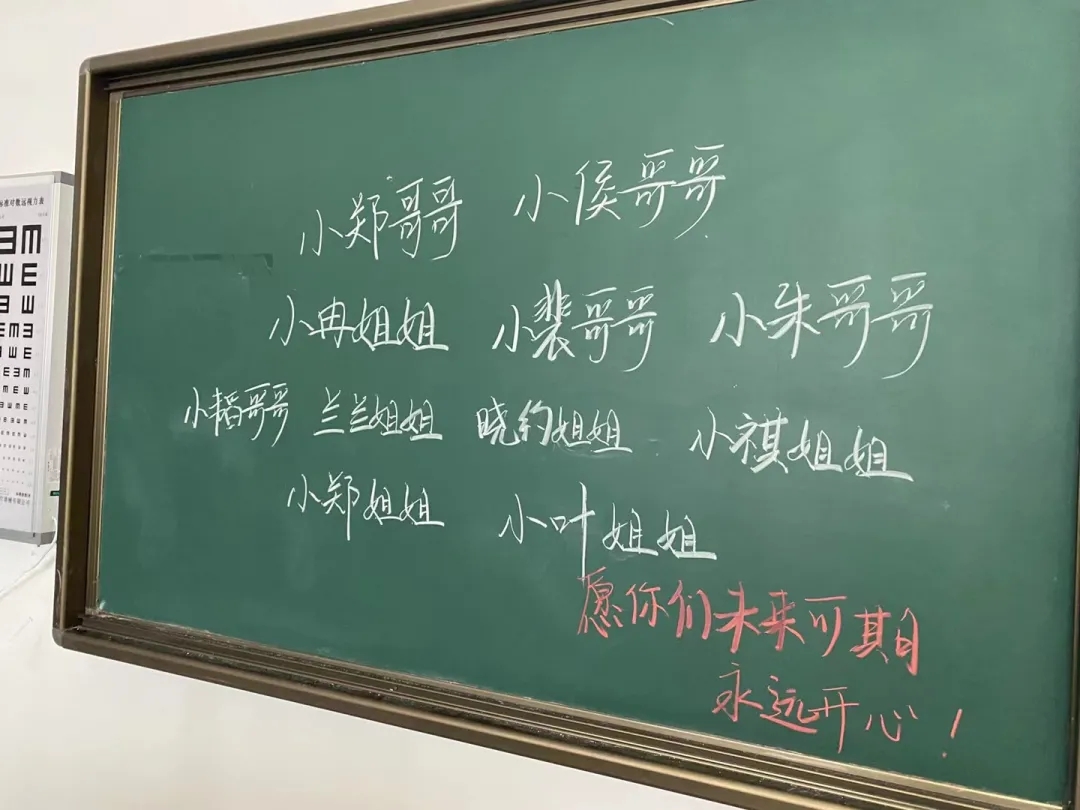 标准对数远视力表
小郑哥哥 小侯哥哥
小冉姐姐 小裴哥哥 小朱哥哥
小韬哥哥 兰兰姐姐 晓约姐姐 小祺姐姐
小郑姐姐 小叶姐姐
愿你们未来可期
永远开心!